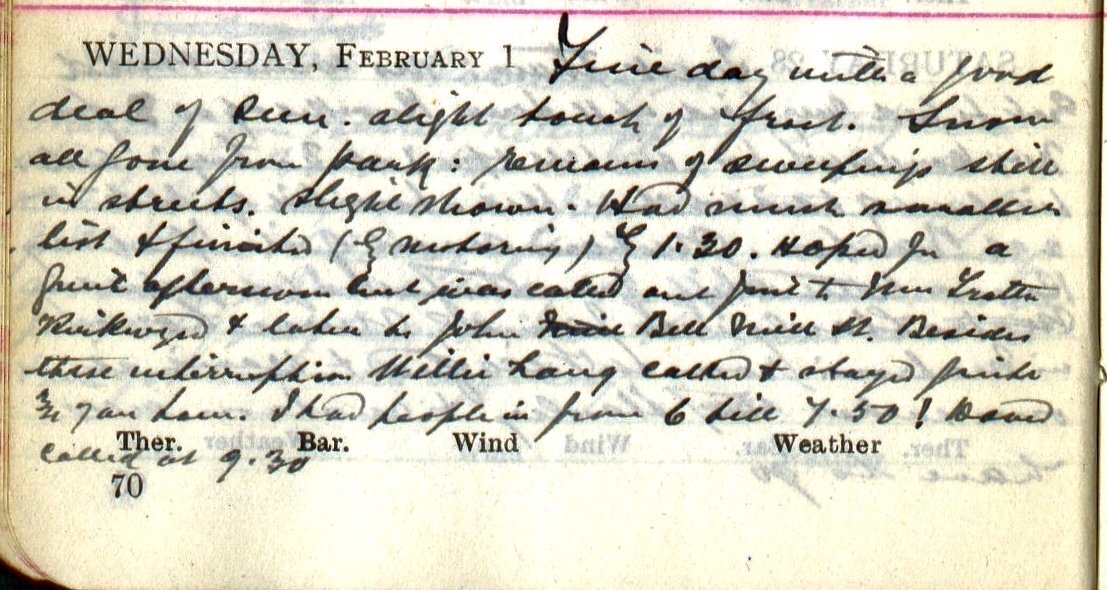 WEDNESDAY, FEBRUARY 1 Fine day with a good
deal of sun. slight touch of frost. Snow
all gone from park: remains of sweepings still
in streets. Slight thaw. Had much smaller
list & finished (by motoring) by 1.30. Hoped for a
quiet afternoon but was called out first to Mrs
& later to John Bell Mill St. Besides
these interruptions Willie Lang called & stayed quite
¾ of an hour. I had people in from 6 till 7.50!
called at 9.30
Ther. Bar. Wind Weather
70